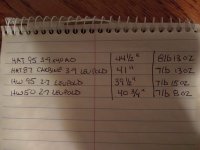 HAT 95 3-9 | 44 1/2" | 8lb 13oz
HAT 87 CARBINE 3-9 LEUPOLD | 41" | 7lb 13oz
HW 95 2-7 LEUPOLD | 39 1/2" | 7lb 15oz
HW50 2-7 LEUPOLD | 40 3/4" | 7lb 8oz